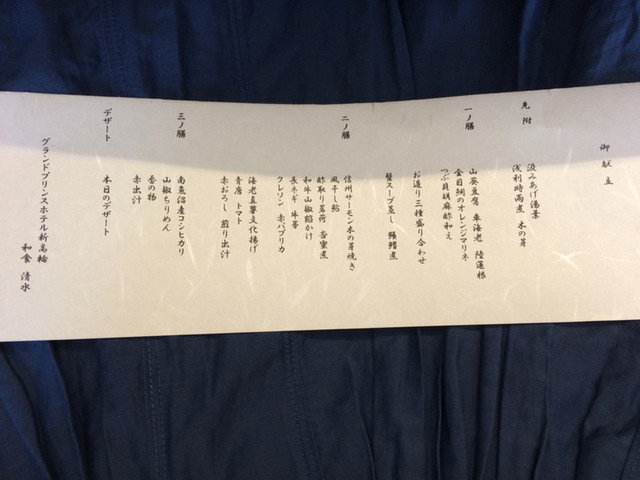 御献立
先附
汲みあげ湯葉
浅利時雨煮 木の芽
一ノ膳
山葵豆腐 車海老 陸蓮根
金目鯛のオレンジマリネ
つぶ貝胡麻酢和え
お造り三種盛り合わせ
蟹スープ蒸し 鱶鰭煮
二ノ膳
信州サーモン木の芽焼き
風干し鮎
酢取り茗荷 杏蜜煮
和牛山椒餡かけ
長ネギ 牛蒡
クレソン 赤パプリカ
海老真薯文化揚げ
青唐 トマト
赤おろし 煎り出汁
三ノ膳
南魚沼産コシヒカリ
山椒ちりめん
香の物
赤出汁
デザート
本日のデザート
グランドプリンスホテル新高輪
和食 清水